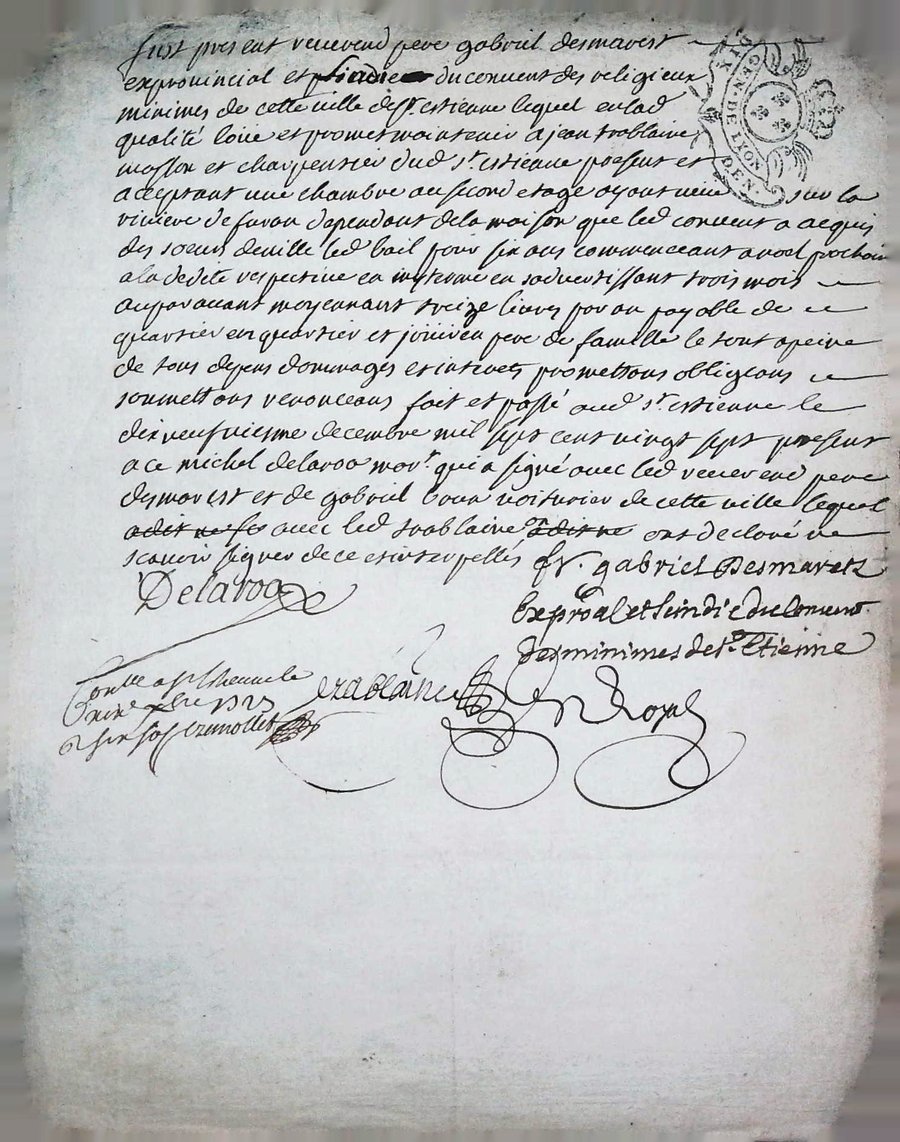 fust present reverend pere gabriel desmarest
exprovincial et sindic du convent des religieux
minimes de cette ville de st estienne lequel en lad
qualité loue et promet maintenir a jean trablaine
masson et charpentier dud st estienne present et
acceptant une chambre au second etage ayant veue sur la
riviere de furan dependant de la maison que led convent a acquis
des soeurs deville led bail pour six ans commenceant a noel prochain
a la dedite respective en my terme en sadvertissant trois mois
auparavant moyennant treize livres par an payable de
quartier en quartier et jouir en pere de famille le tout a peine
de tous depens dommages et interets promettans obligeans
soumettans renonceans fait et passé aud st estienne le
dix neufviesme decembre mil sept cent vingt sept present
a ce michel delaroa mart. qui a signé avec led reverend pere
desmarest et de gabriel voiturier de cette ville lequel
avec led trablaine ont declaré ne
scavoir signer de ce enterpellés fr. gabriel Desmaretz
Delaroa
Exproal et sindic du convent
des minimes de st. Etienne
trablaine
GEN. DE LYON
DEN.